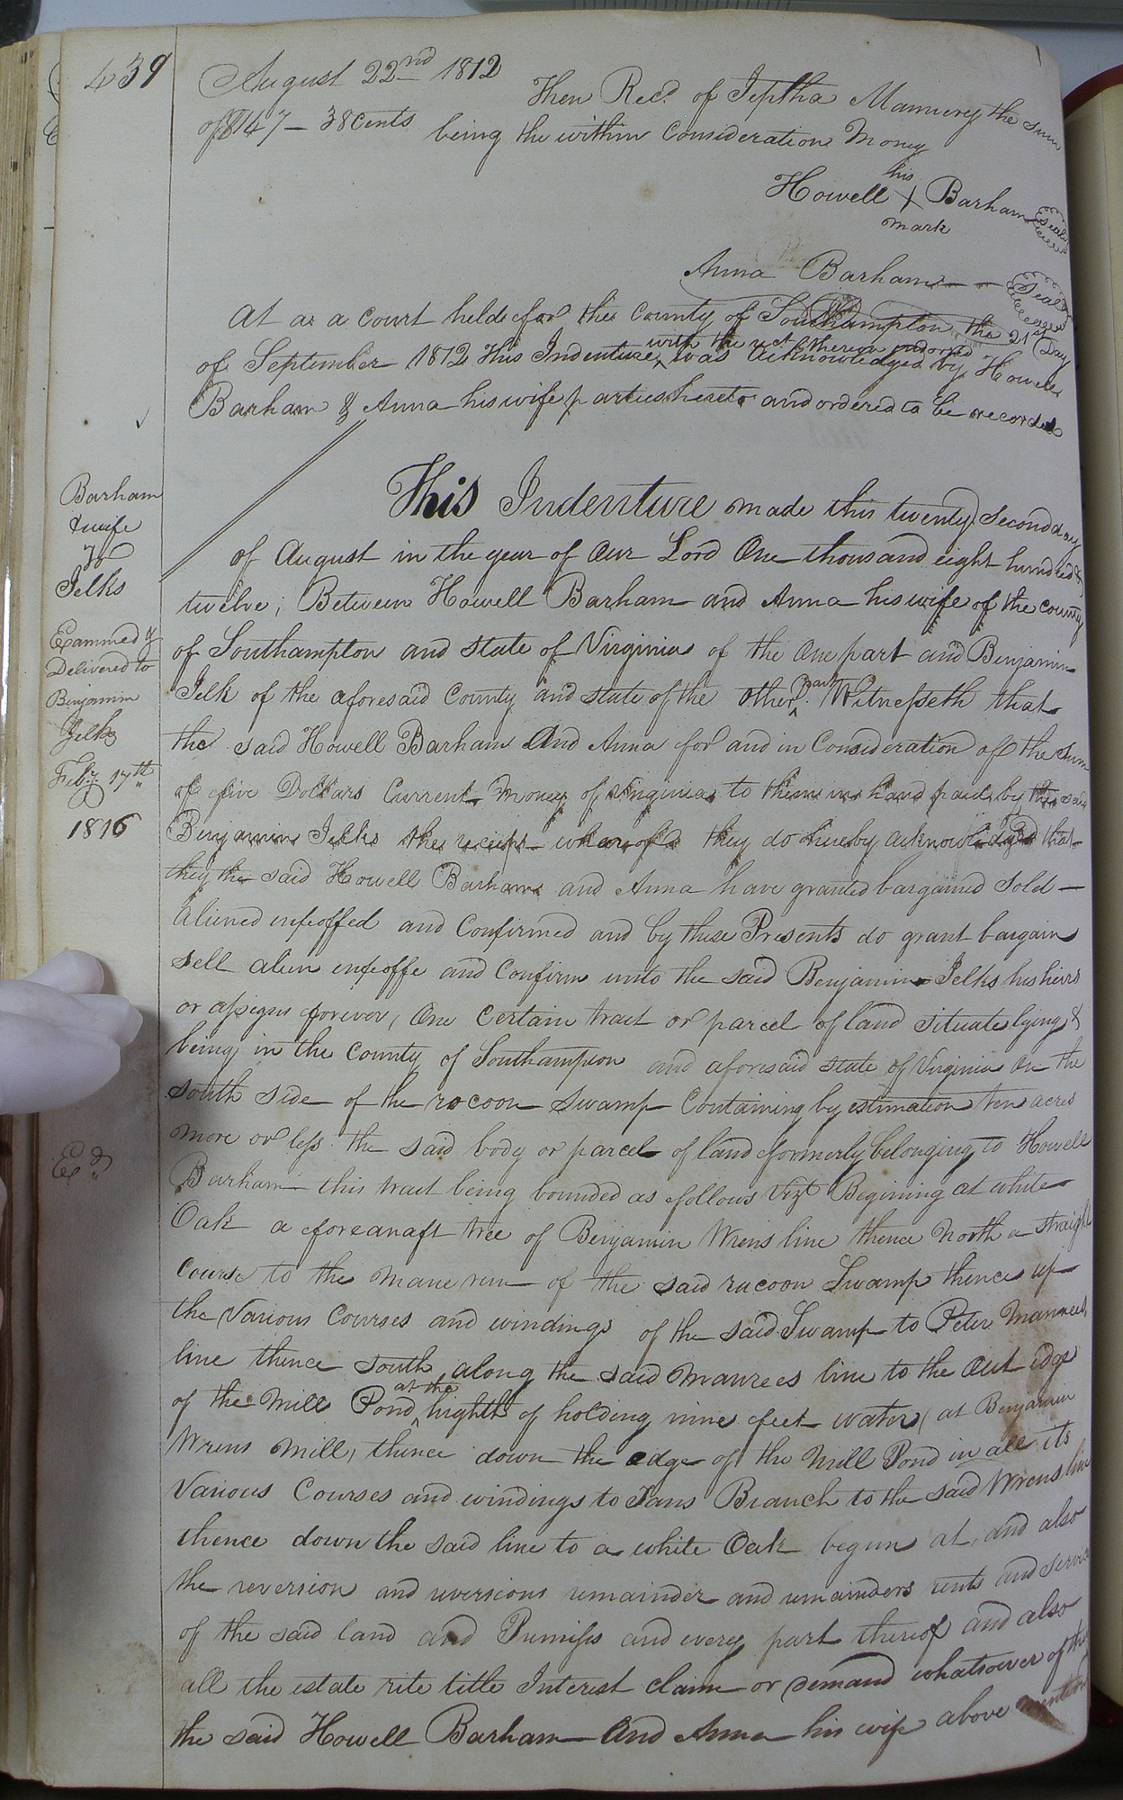 439
August 22nd 1812
Then Recd. of Jeptha Mannery the sum
of $147 - 38 Cents being the within Consideration Money
his
Howell X Barham Seal
mark
Anna Barham Seal
At as a Court held for the County of Southampton the 21st Day
with the rct. thereon endorsed
of September 1812 This Indenture ^ was acknowledged by Howell
Barham & Anna his wife parties hereto and ordered to be recorded
Barham
& wife
To
Jelks
Examined &
Delivered to
Benjamin
Jelks
Feby. 17th
1816
Ed
This Indenture made this twenty second day
of August in the year of Our Lord One thousand eight hundred &
twelve; Between Howell Barham and Anna his wife of the county
of Southampton and state of Virginia of the One part and Benjamin
part
Jelk of the aforesaid County and state of the other ^. Witnesseth that
the said Howell Barham And Anna for and in Consideration of the sum
of five Dollars Current Money of Virginia to them in hand paid by the said
Benjamin Jelks the receipt whereof they do hereby acknowledged that
they the said Howell Barham and Anna have granted bargained sold
aliened enfeoffed and Confirmed and by these Presents do grant bargain
sell alien enfeoffe and Confirm unto the said Benjamin Jelks his heirs
or assigns forever, One Certain tract or parcel of land situate lying &
being in the County of Southampton and aforesaid state of Virginia On the
south side of the racoon Swamp Containing by estimation ten acres
more or less the said body or parcel of land formerly belonging to Howell
Barham this tract being bounded as follows Vizt Begining at white
Oak a foreanaft tree of Benjamin Wrens line thence North a straight
Course to the mane run of the said racoon Swamp thence up
the Various Courses and windings of the said Swamp to Peter Manrees
line thence south along the said Manrees line to the Out edge
at the
of the Mill Pond ^ highth of holding nine feet water (at Benjamin
Wrens Mill) thence down the edge of the Mill Pond in all its
Various Courses and windings to Pans Branch to the said Wrens line
thence down the said line to a white Oak begun at, and also
the reversion and reversions remainder and remainders rents and service
of the said land and Premises and every part thereof and also
all the estate rite title Interest claim or demand whatsoever of the
the said Howell Barham And Anna his wife above mention